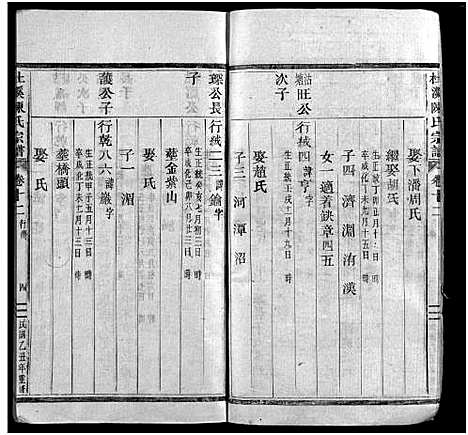 杜溪陳氏宗譜 卷十二
娶下潘周氏
繼娶胡氏
子四 濟 淵 洧 漢
女一適着鈌章四五
旺公
次子
行 四 諱亨 字
生正統壬戌十一月十九日 時
娶趙氏
子三 河 潭 沼
公長
子
行 二三 諱鑰 字
生正統癸亥七月初三日 時
卒成化己卯八月廿三日 時
塟金山
護公子
行乾八六 諱嚴 字
生正統甲子五月十三日 時
卒成化丁未七月十三日 時
娶 氏
子一 湄
塟橋頭
娶 氏
杜溪陳氏宗譜 卷十二 行傳 四 民國乙丑年重修